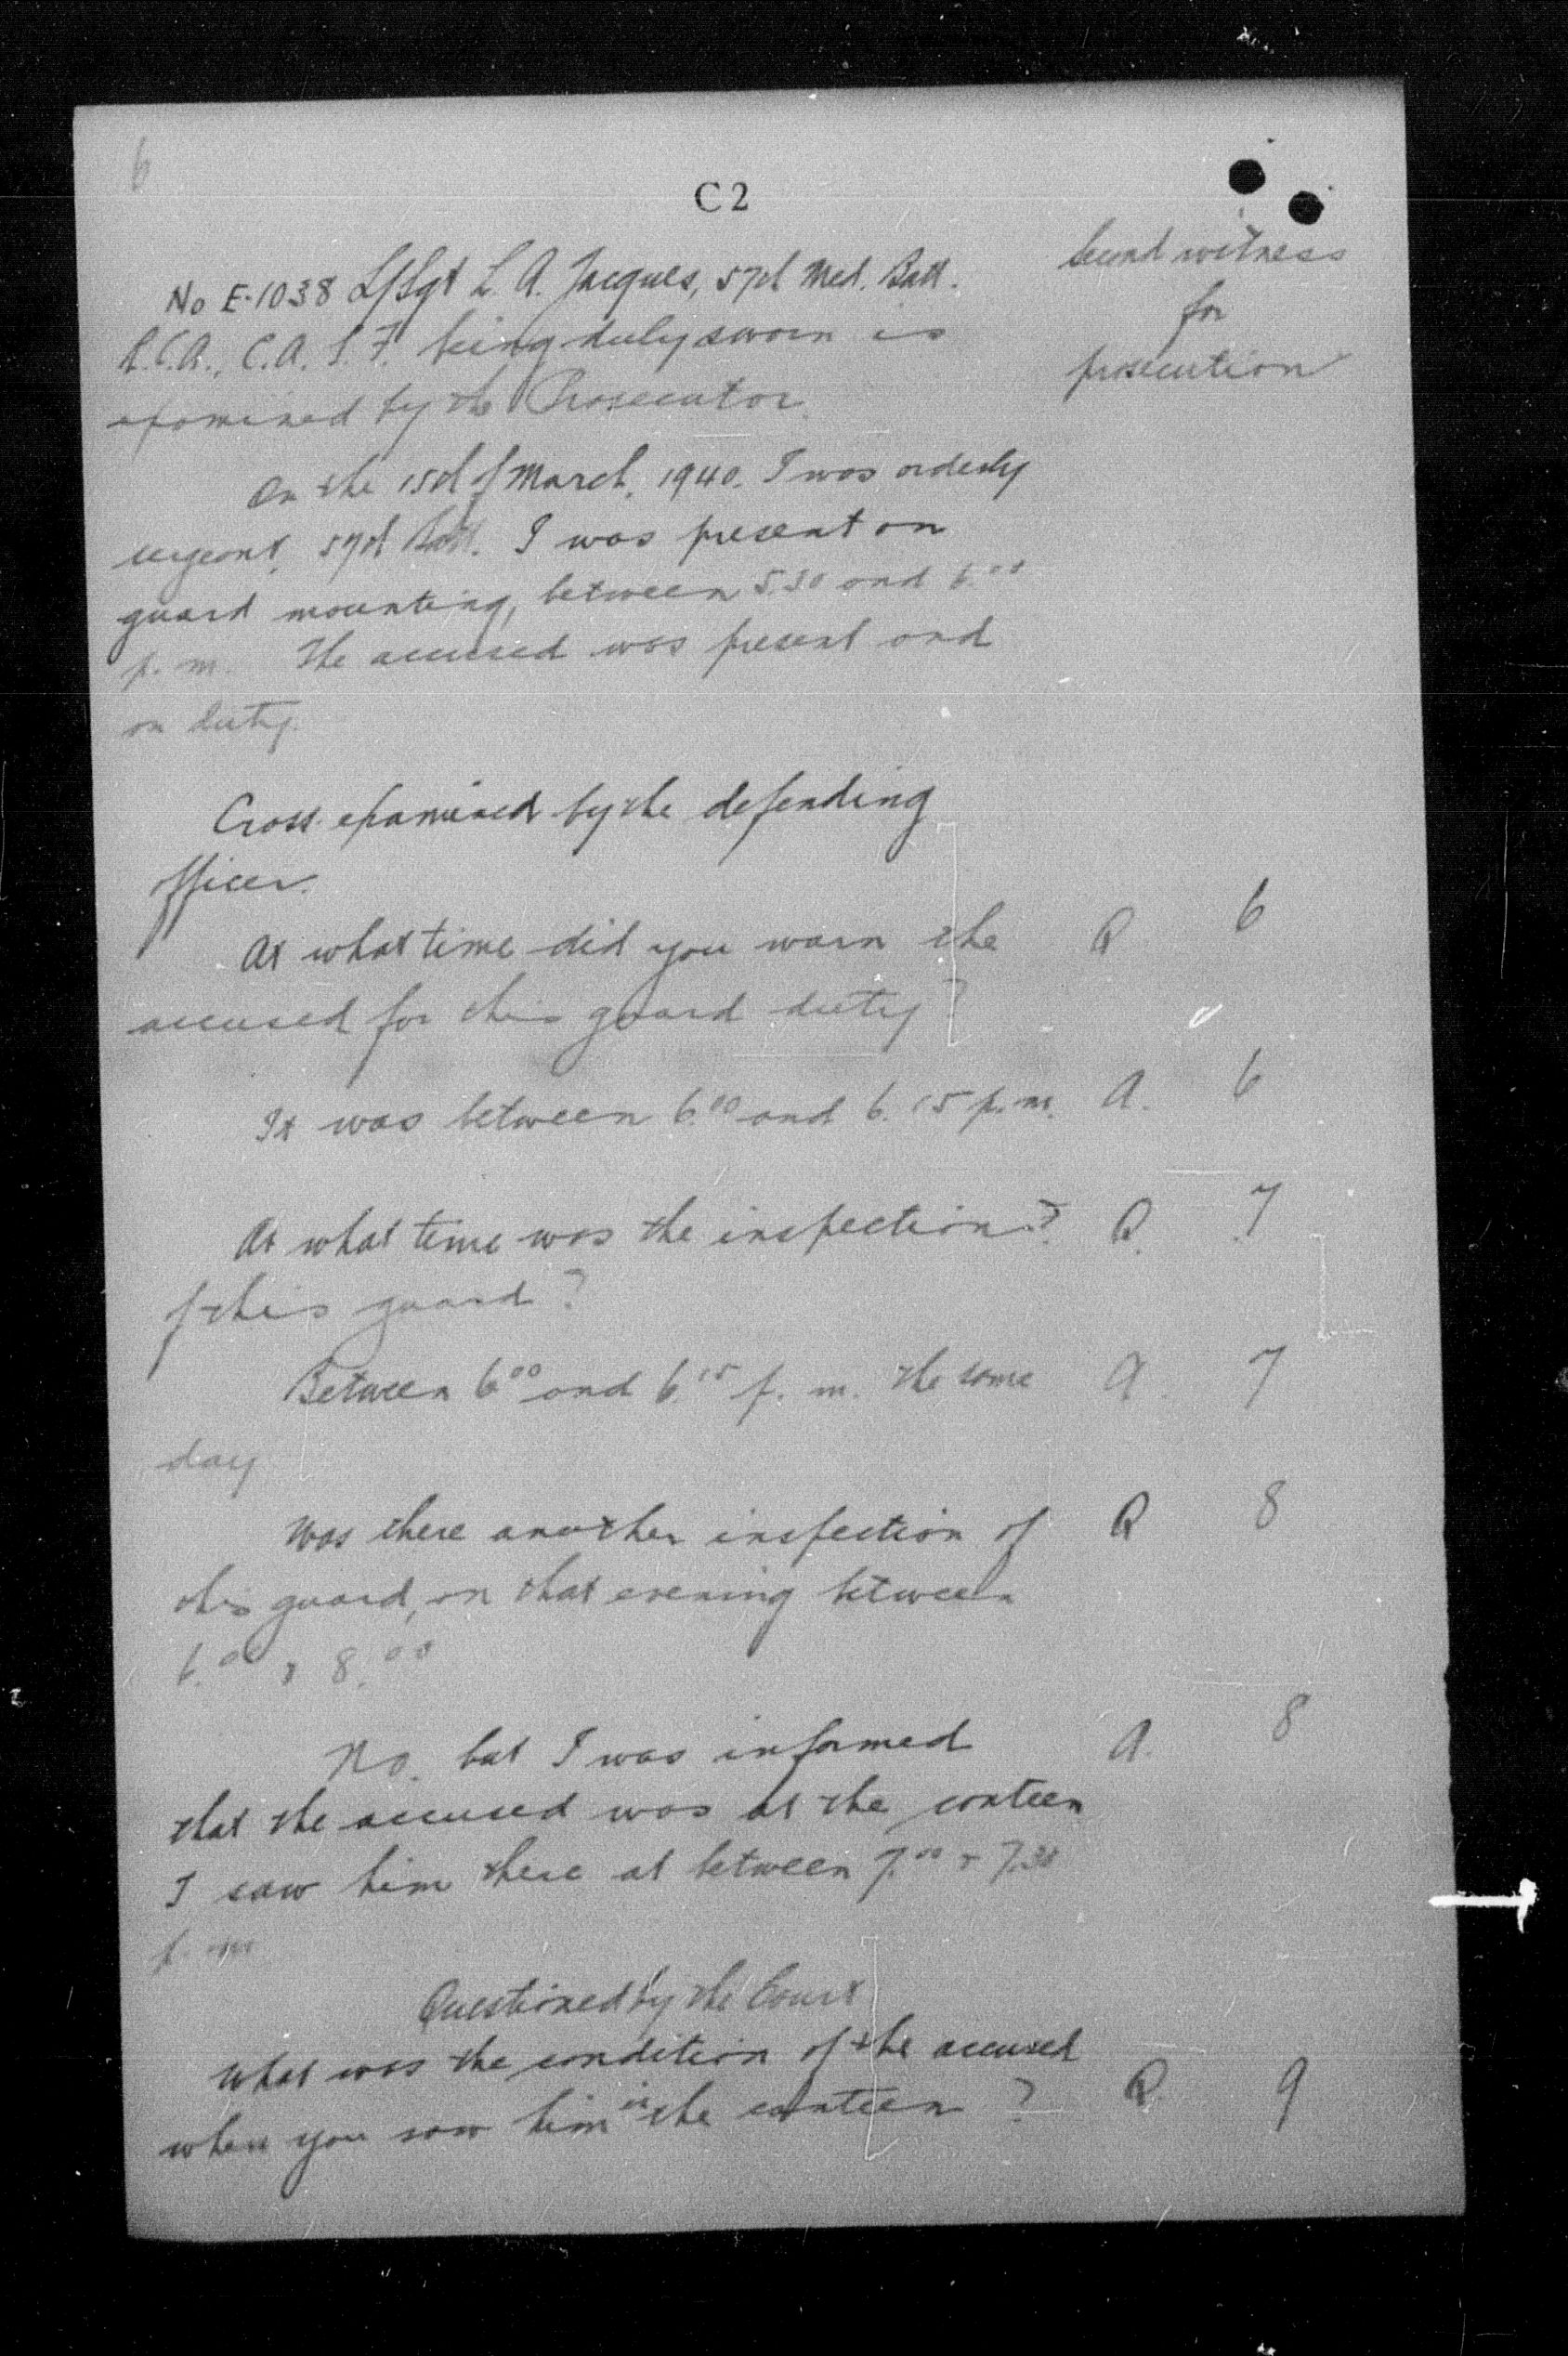 6
C2
No E-1038 L/Sgt L. A. Jacques, 57th Med. Batt.
Second witness
for
prosecution
R.C.A., C.A.S.F. being duly sworn is
examined by the Prosecutor.
On the 15th of March, 1940. I was orderly
sergeant, 57th Batt. I was present on
guard mounting, between 5.30 and 6.00
p.m. The accused was present and
on duty.
Cross-examined by the defending
officer.
At what time did you warn the Q 6
accused for this guard duty?
It was between 6.00 and 6.15 p.m. A. 6
At what time was the inspection? Q. 7
of this guard?
Between 6.00 and 6.15 p.m. the same A. 7
day
Was there another inspection of Q 8
this guard, on that evening between
6.00 & 8.00
No. but I was informed A. 8
that the accused was at the canteen
I saw him there at between 7.00 & 7.30
p.m.
Questioned by the Court
What was the condition of the accused
when you saw him in the canteen? Q. 9